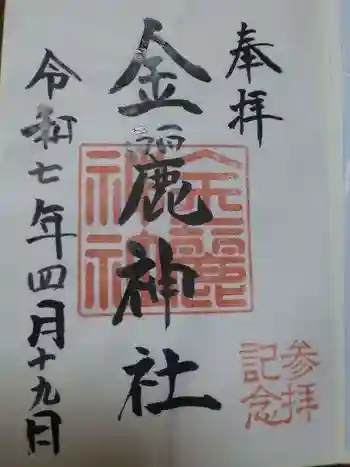 奉拝
金麗神社
令和七年四月十九日
金麗
神社
参拝
記念